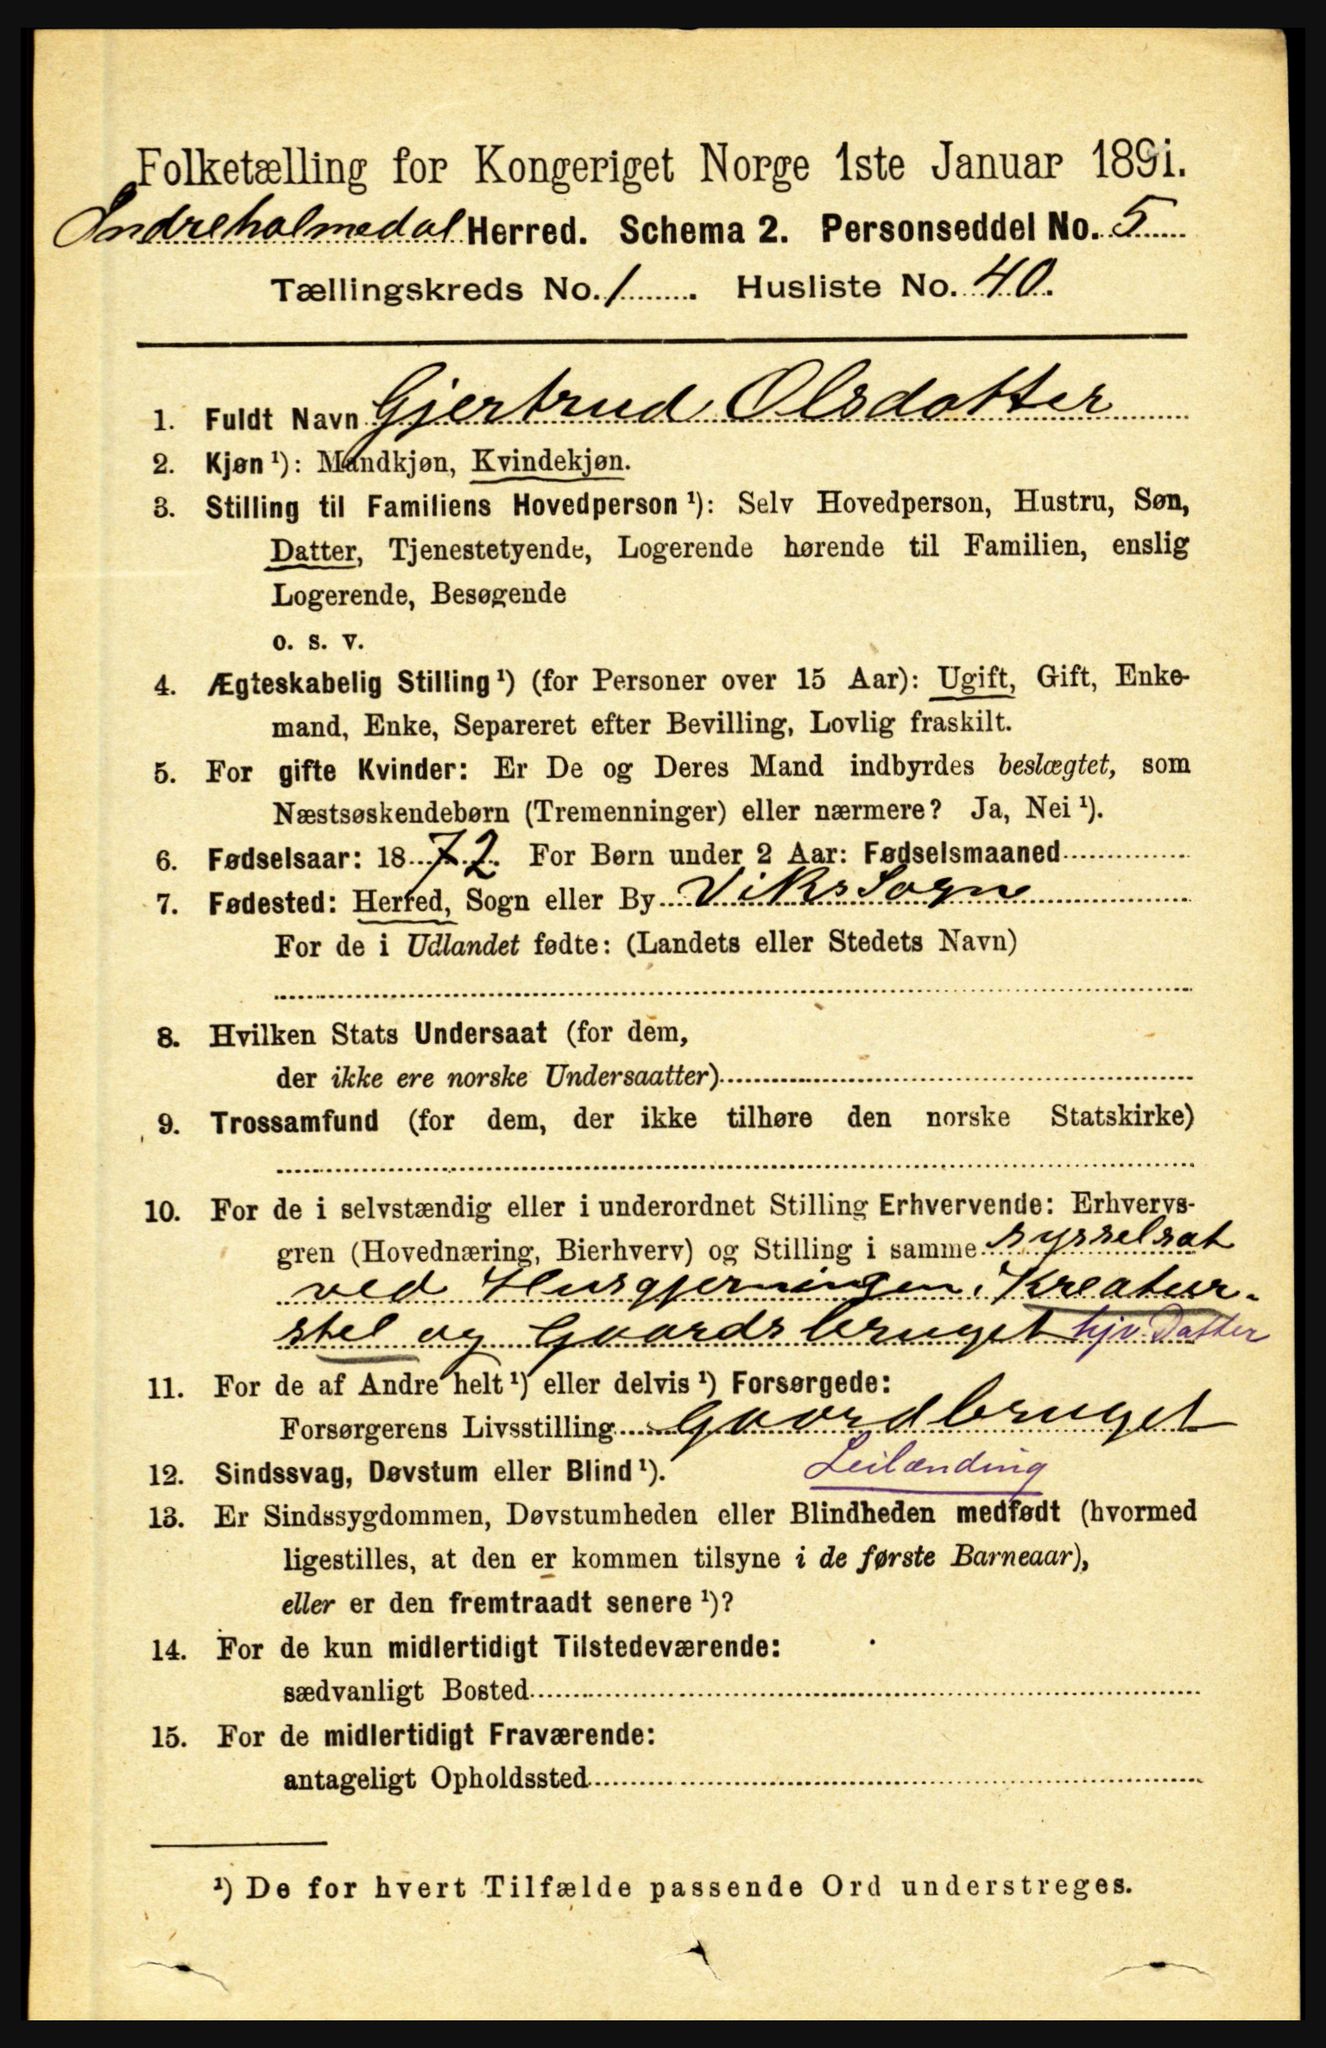 Folketælling for Kongeriget Norge 1ste Januar 1891.
Indreholmedal Herred. Schema 2. Personseddel No. 5
Tællingskreds No. 1 . Husliste No. 40.
1. Fuldt Navn Gjertrud Olsdatter
2. Kjøn¹): Mandkjøn, Kvindekjøn.
3. Stilling til Familiens Hovedperson¹): Selv Hovedperson, Hustru, Søn,
Datter, Tjenestetyende, Logerende hørende til Familien, enslig
Logerende, Besøgende
o. s. v.
4. Ægteskabelig Stilling¹) (for Personer over 15 Aar): Ugift, Gift, Enke-
mand, Enke, Separeret efter Bevilling, Lovlig fraskilt.
5. For gifte Kvinder: Er De og Deres Mand indbyrdes beslægtet, som
Næstsøskendebørn (Tremenninger) eller nærmere? Ja, Nei¹).
6. Fødselsaar: 1872. For Børn under 2 Aar: Fødselsmaaned
7. Fødested: Herred, Sogn eller By Viks Sogne
For de i Udlandet fødte: (Landets eller Stedets Navn)
8. Hvilken Stats Undersaat (for dem,
der ikke ere norske Undersaatter)
9. Trossamfund (for dem, der ikke tilhøre den norske Statskirke)
10. For de i selvstændig eller i underordnet Stilling Erhvervende: Erhvervs-
gren (Hovednæring, Bierhverv) og Stilling i samme sysselsat
ved Husgjerningen, Kreatur-
stel og Gaardsbruget hjv. Datter
11. For de af Andre helt¹) eller delvis¹) Forsørgede:
Forsørgerens Livsstilling Gaardbruget
12. Sindssvag, Døvstum eller Blind¹). Leilænding
13. Er Sindssygdommen, Døvstumheden eller Blindheden medfødt (hvormed
ligestilles, at den er kommen tilsyne i de første Barneaar),
eller er den fremtraadt senere¹)?
14. For de kun midlertidigt Tilstedeværende:
sædvanligt Bosted
15. For de midlertidigt Fraværende:
antageligt Opholdssted
¹) De for hvert Tilfælde passende Ord understreges.